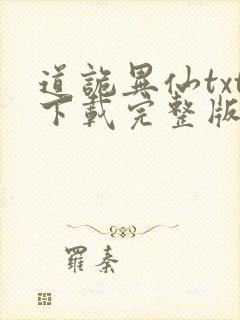 道詭異仙txt
下載完整版
羅秦